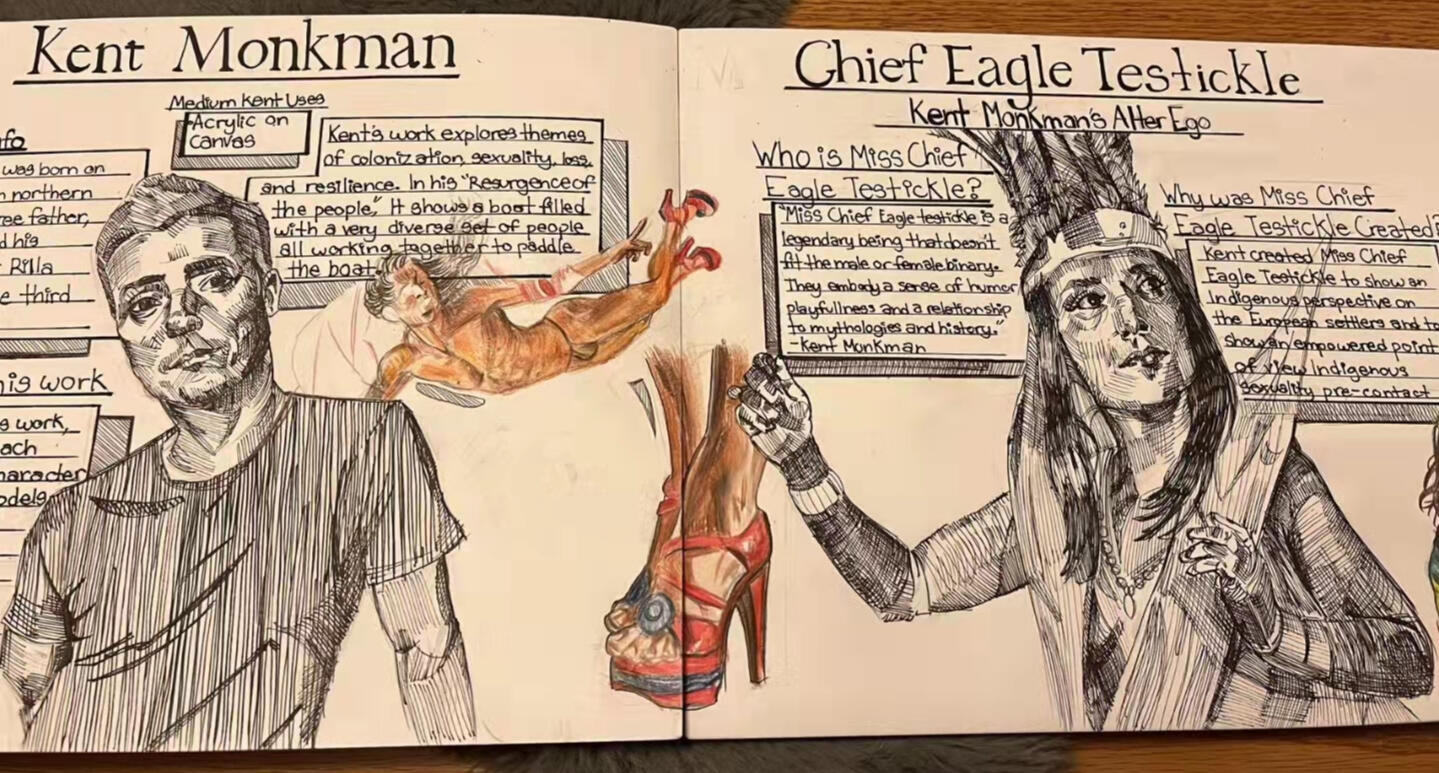 Kent Monkman
Medium Kent Uses
Acrylic on
Canvas
Kent's work explores themes
of colonization, sexuality, loss,
and resilience. In his "Resurgence of
the people," It shows a boat filled
with a very diverse set of people
all working together to paddle
the boat
fo
was born on
n northern
ree father,
d his
Rilla
e third
his work
s work,
ach
haracter
odels
Chief Eagle Testickle
Kent Monkman's Alter Ego
Who is Miss Chief
Eagle Testickle?
"Miss Chief Eagle testickle is a
legendary being that doesn't
fit the male or female binary.
They embody a sense of humor,
playfullness and a relationship
to mythologies and history."
-Kent Monkman
Why was Miss Chief
Eagle Testickle Created?
Kent created Miss Chief
Eagle Testickle to show an
Indigenous perspective on
the European settlers and to
show an empowered point
of view Indigenous
sexuality pre-contact